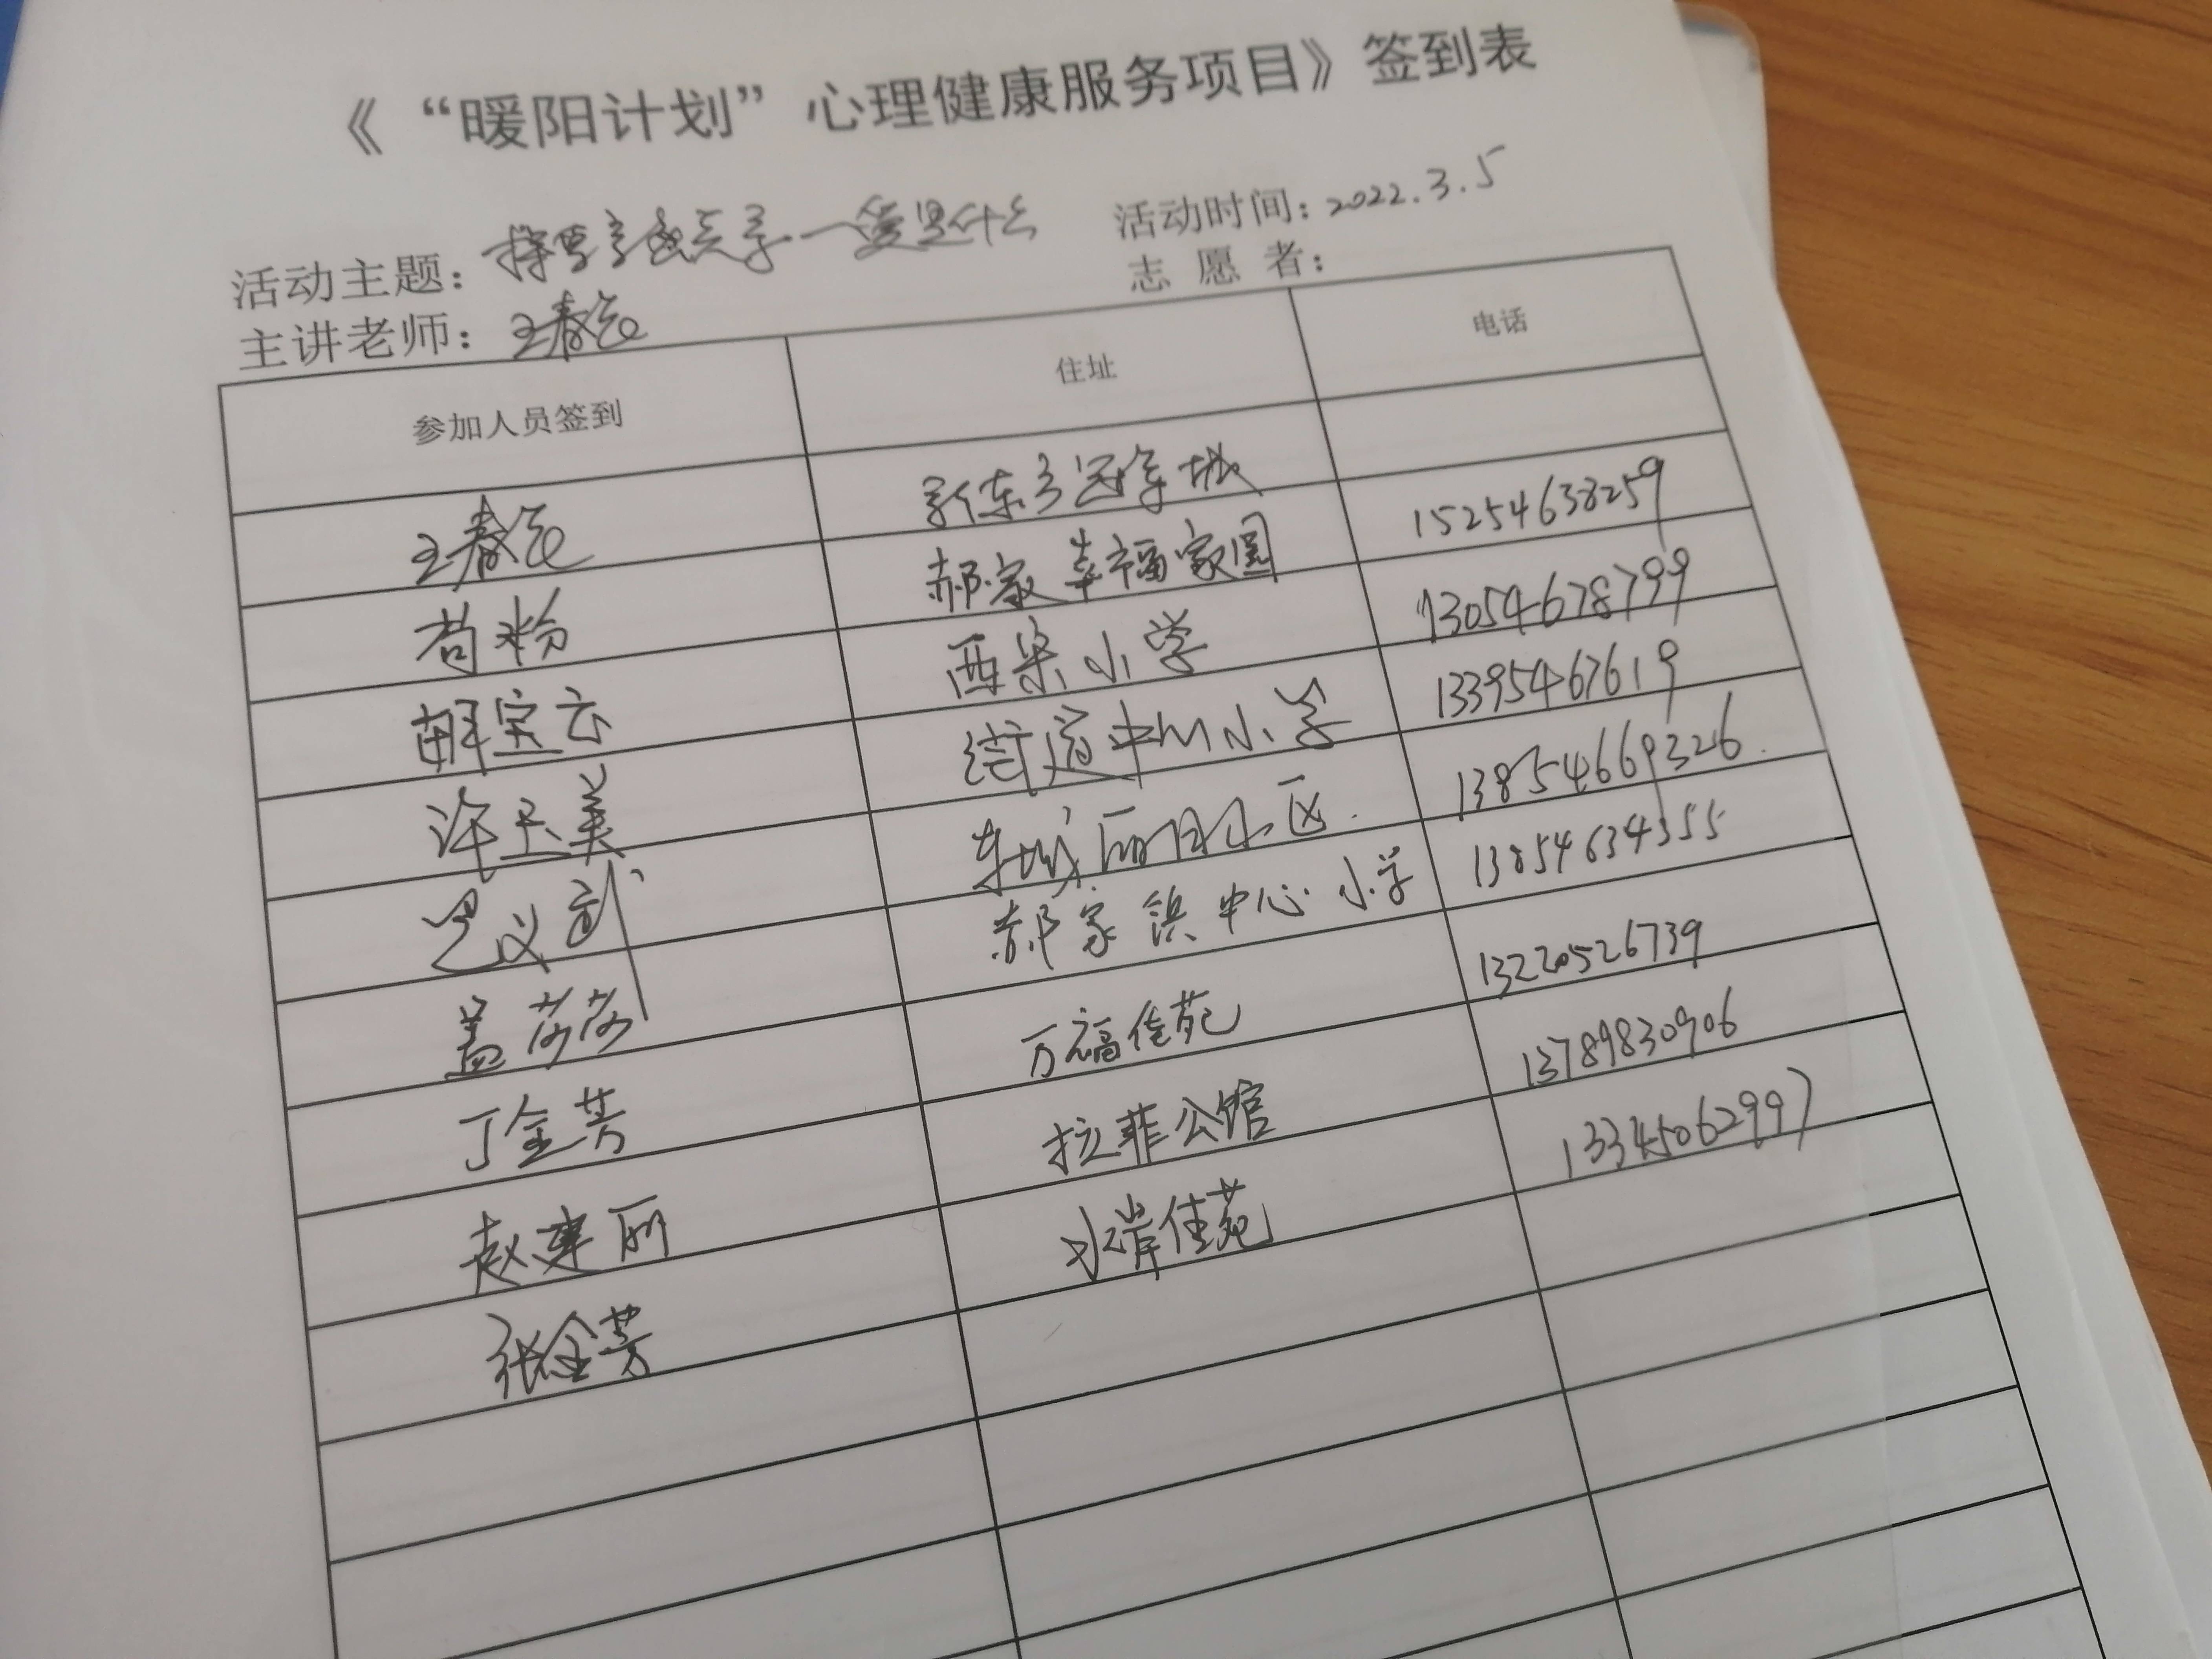 《“暖阳计划”心理健康服务项目》签到表
活动主题：探索亲密关系—爱是什么 活动时间：2022.3.5
主讲老师：王春 志愿者：
参加人员签到 住址 电话
王春 新东方冠军城
苟粉 郝家幸福家园 15254638259
胡宝云 西宋小学 13054678799
许玉美 街道中心小学 13395467619
义武 东城丽日小区. 13854669326.
盖莎莎 郝家镇中心小学 13854634355
丁金芳 万福佳苑 13220526739
赵建丽 拉菲公馆 13789830906
张金芳 水岸佳苑 13345062997